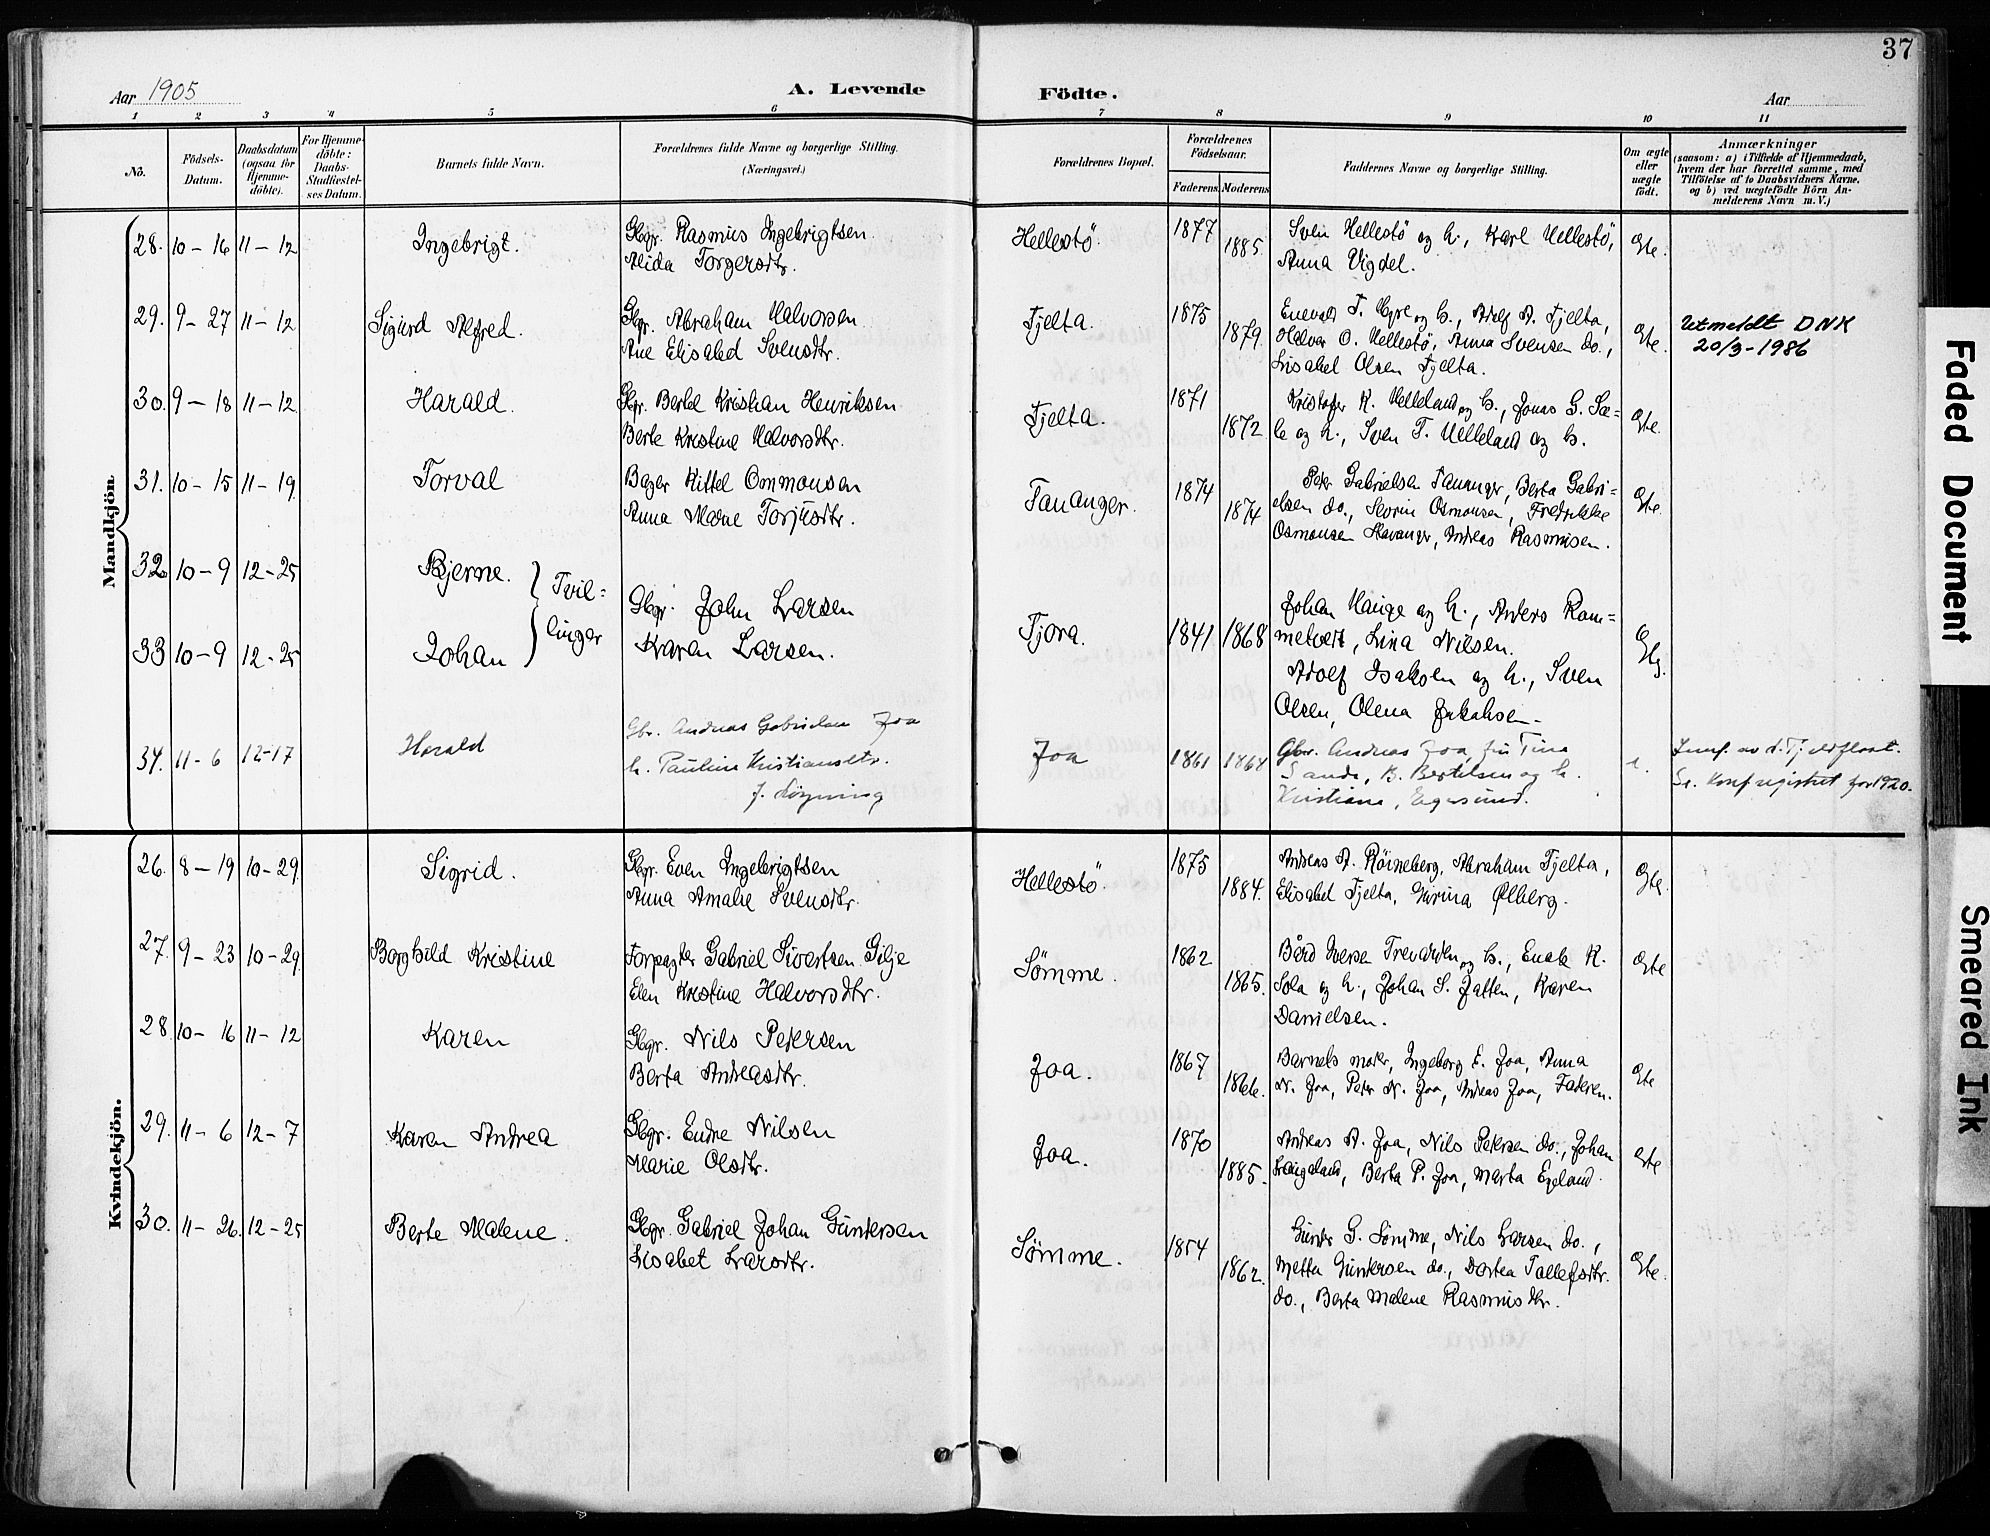 37
Aar 1905
A. Levende
Födte.
Aar
1 2 3 4 5 6 7 8 9 10 11
No.
Födsels-Datum.
Daabsdatum (ogsaa for Hjemme-döbte).
For Hjemme-döbte: Daabs-Stadfæstel-ses Datum.
Barnets fulde Navn.
Forældrenes fulde Navne og borgerlige Stilling.
(Næringsvei.)
Forældrenes Bopæl.
Forældrenes Födselsaar.
Faderens. Moderens
Faddernes Navne og borgerlige Stilling.
Om ægte eller uægte födt.
Anmærkninger
(saasom: a) i Tilfælde af Hjemmedaab,
hvem der har forrettet samme, med
Tilföielse af to Daabsvidners Navne.
og b) ved uægtefödte Börn An-
melderens Navn m. V.)
Mandkjön.
28. 10-16 11-12 Ingebrigt. Gbgr. Rasmus Ingebrigtsen Alida Torgersdtr. Hellestö. 1877 1885. Sven Hellestö og h., Karl Hellestö, Anna Vigdel. Egte.
29. 9-27 11-12 Sigurd Alfred. Gbgr. Abraham Halvorsen Ane Elisabed Svensdtr. Tjelta. 1875 1879. T. og h., Adolf A. Tjelta, Halvor O. Hellestö, Anna Svensen do., Lisabet Olsen Tjelta. Egte. Utmeldt DNK 20/3-1986
30. 9-18 11-12 Harald. Gbgr. Bertel Kristian Henriksen Berte Kristine Halvorsdtr. Tjelta. 1871 1872. Kristofer K. Helleland og h., Jonas G. og h., Sven T. Helleland og h. Egte.
31. 10-15 11-19 Torval Kittel Ommonsen Anna Marie Torjusdtr. Tananger. 1874 1874 Peter Gabrielsen Tananger, Berta Gabri=elsen do., Severin Osmonsen, Fredrikke Osmonsen Havanger, Andreas Rasmussen. Egte.
32. 10-9 12-25 Bjerne. } Tvil=
33 10-9 12-25 Johan } linger Gbgr. John Larsen Karen Larsen. Tjora. 1841 1868 Johan Hauge og h., Anders Rom=metvedt, Lina Nilsen. Adolf Isaksen og h., Sven Olsen, Olena Jakobsen Egte.
34. 11-6 12-17 Harald Gbr. Andreas Gabrielsen Joa h. Pauline Kristiansdtr. f. Löyning Joa 1861 1864 Gbr. Andreas Joa, frk Tina Sande, B. Bertelsen og h. Kristiane, Egersund. e. Konf. registret for 1920.
Kvindekjön.
26. 8-19 10-29 Sigrid. Gbgr. Even Ingebrigtsen Anna Amalie Svensdtr. Hellestö. 1875 1884. Andreas A. Röineberg, Abraham Tjelta, Elisabet Tjelta, Gurina Ölberg. Egte.
27. 9-23 10-29 Borghild Kristine Forpagter Gabriel Sivertsen Gilje Elen Kristine Halvorsdtr. Sömme. 1862 1865. Bård Iversen og h., K. Sola og h., Johan S. Jatten, Karen Danielsen. Egte
28. 10-16 11-12 Karen Gbgr. Nils Petersen Berta Andreasdtr. Joa. 1867 1866. Barnets moder, Ingeborg E. Joa, Anna N. Joa, Peder N. Joa, Andreas Joa, Faderen. Egte
29. 11-6 12-7 Karen Andrea Gbgr. Endre Nilsen Marie Olsdtr. Joa. 1870 1885. Andreas A. Joa, Nils Petersen do., Johan Haugeland, Berta P. Joa, Marta Egeland. Egte
30. 11-26. 12-25 Berte Malene. Gbgr. Gabriel Johan Gundersen Lisabet Larsdtr. Sömme. 1854 1862. Gunder G. Sömme, Nils Larsen do., Metta Gundersen do., Dortea Tollefsdtr. do., Berta Malene Rasmusdtr. Egte.
Faded Document
Smeared Ink